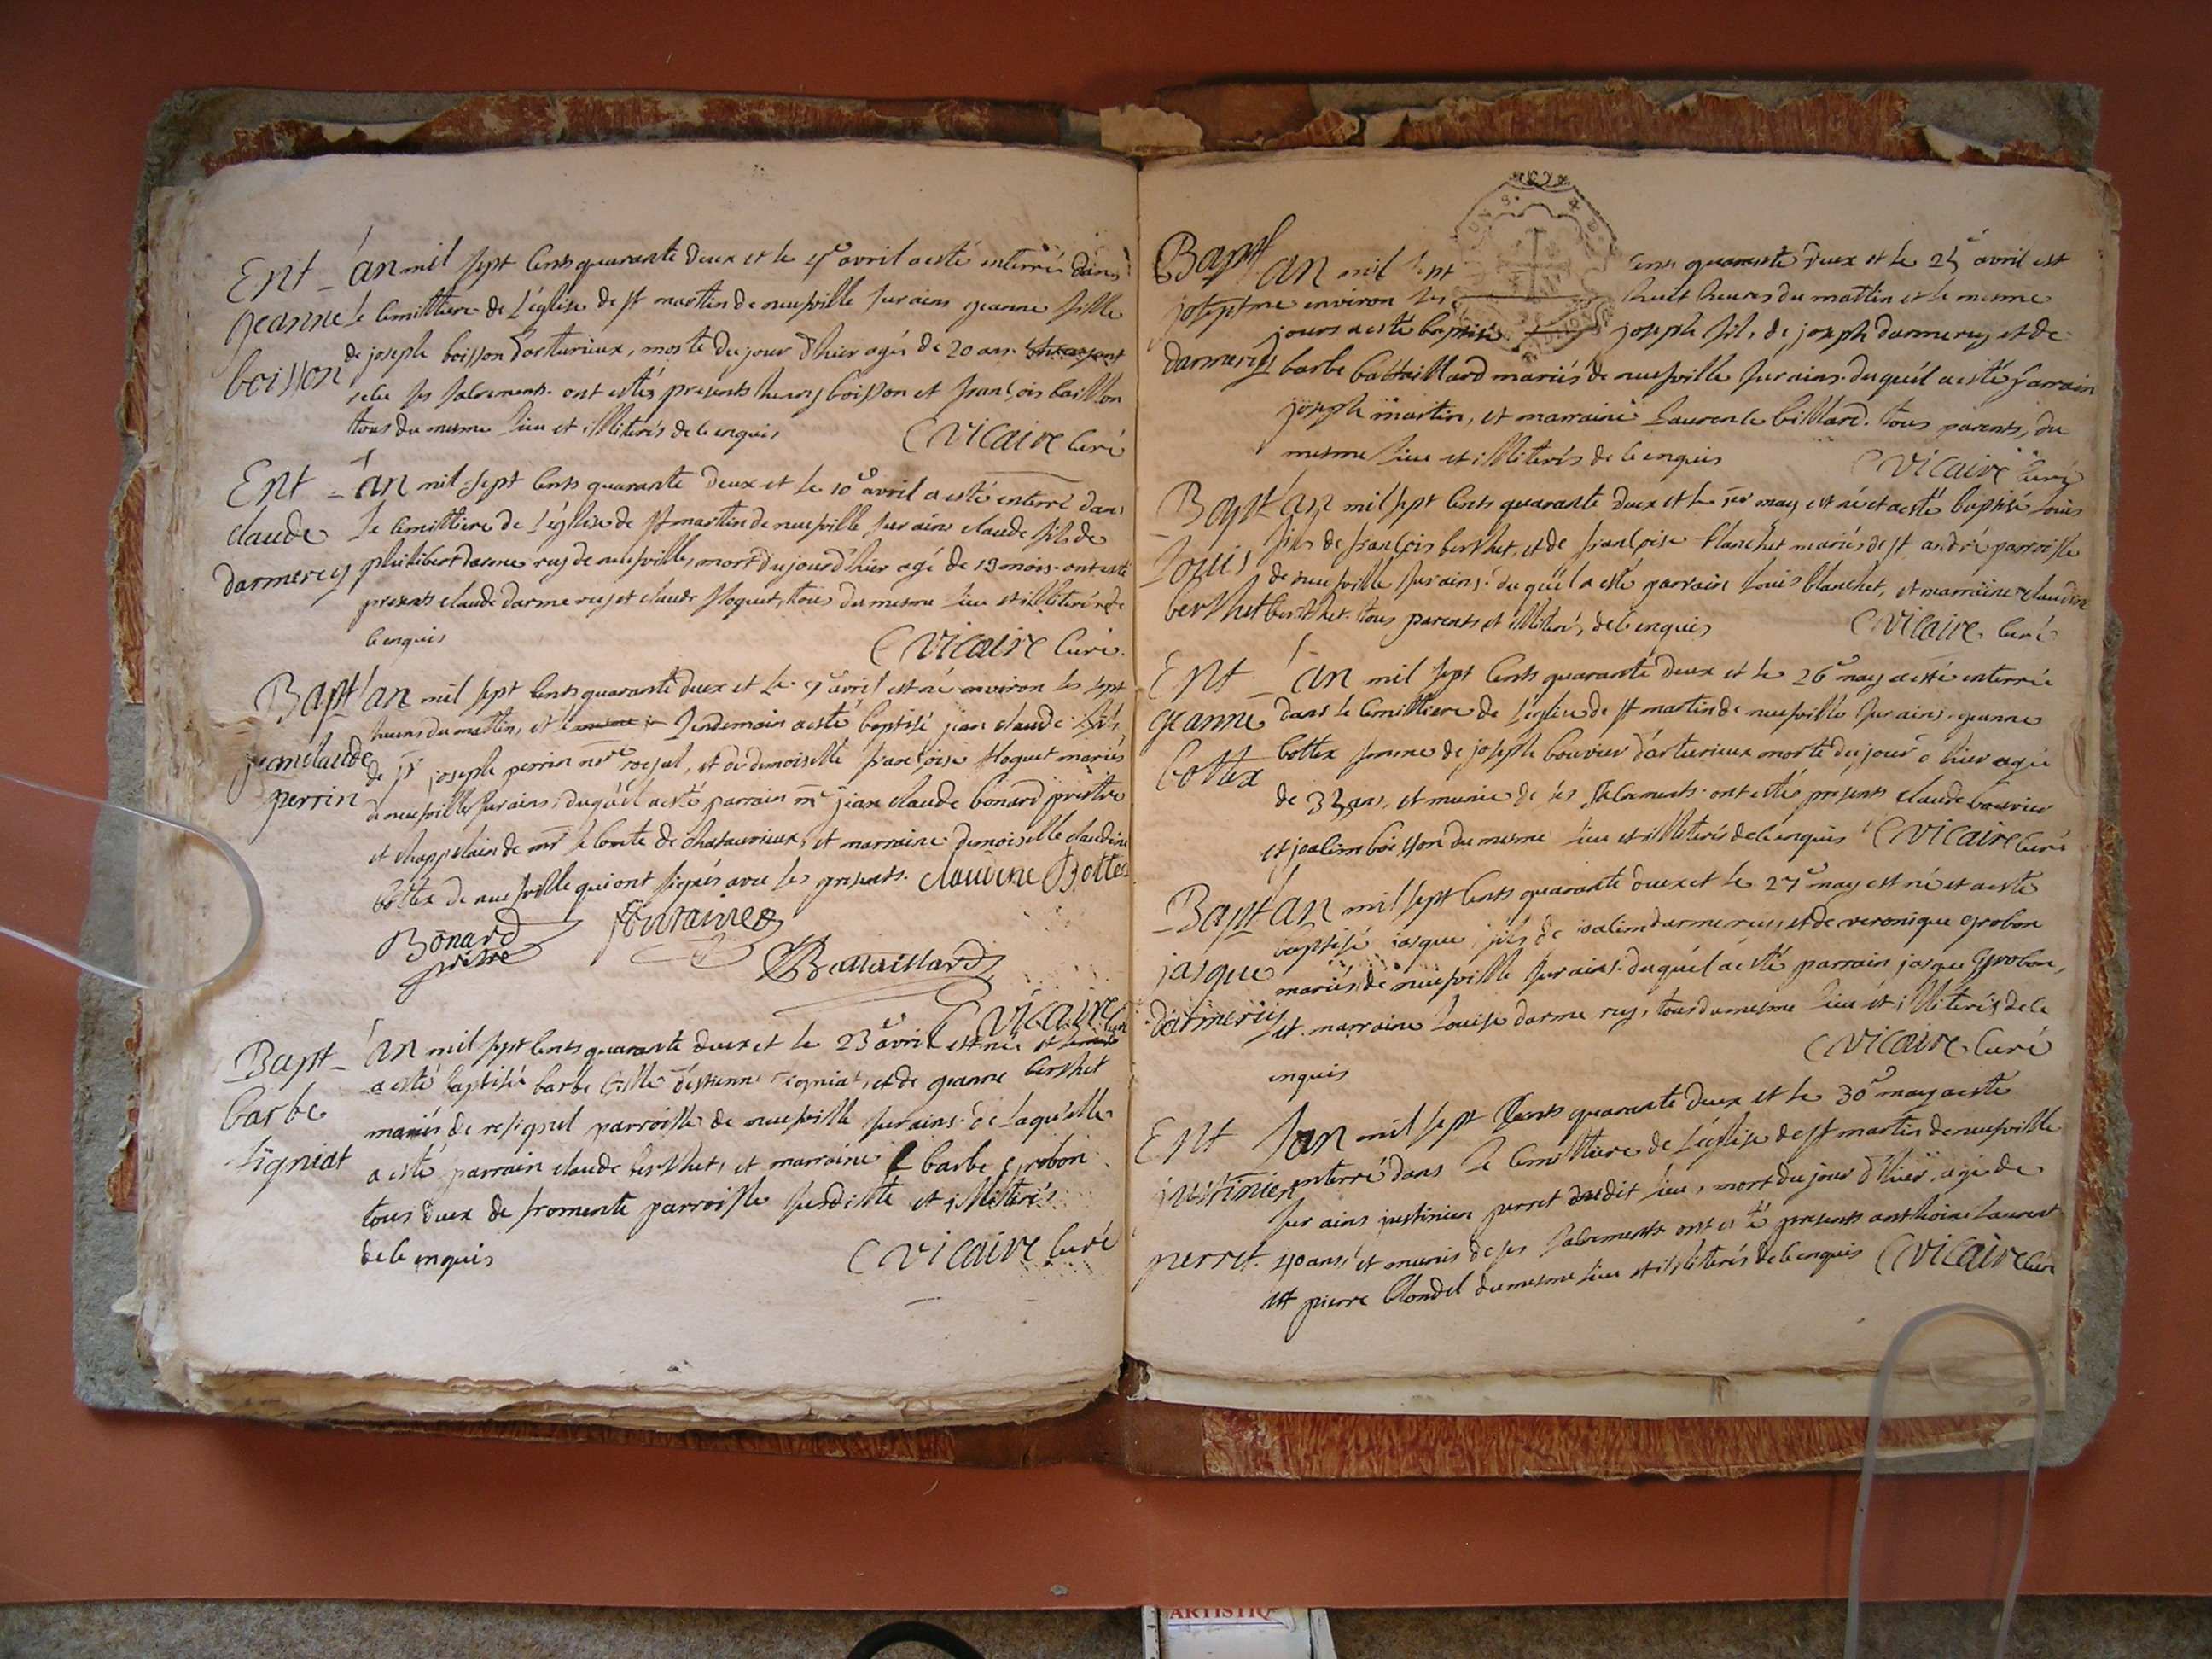 Ent - l'an mil sept cents quarante deux et le 4e avril a esté enterrée dans
jeanne le cimittiere de l'église de st martin de neufville sur ains jeanne fille
boisson de joseph boisson d'arturieux, morte du jour d'hier agée de 20 ans
reçu ses sacrements. ont estés presents henry boisson et françois baillon
tous du mesme lieu et illiterés de ce enquis C vicaire curé
Ent - l'an mil sept cents quarante deux et le 10e avril a esté enterré dans
claude le cimittiere de l'église de st martin de neufville sur ains claude fils de
darmerey philibert darmerey de neufville, mort du jour d'hier agé de 13 mois. ont esté
presents claude darmerey et claude Hoquet, tous du mesme lieu et illiterés de
ce enquis C vicaire curé.
Bapt l'an mil sept cents quarante deux et le 9e avril est né environ les sept
heures du mattin, et le lendemain a esté baptisé jean claude fils
jeanclaude de sr joseph perrin nre royal, et de demoiselle françoise Hoquet mariés
perrin de neufville sur ains, duquél a esté parrain mre jean claude bonard prestre
et chappelain de mr le comte de chatauvieux, et marraine demoiselle claudine
bottex de neufville qui ont signés avec les presents. claudine Bottex
Bonard
prêtre
fontaine
Battaillard
C vicaire curé
Bapt - l'an mil sept cents quarante deux et le 23e avril est née et
barbe a esté baptisée barbe fille d'estienne signiat, et de jeanne berthet
mariés de resignel parroisse de neufville sur ains. de laquelle
signiat a esté parrain claude berthet, et marraine barbe grobon
tous deux de fromente parroisse susditte et illiterés
de ce enquis C vicaire curé
Bapt l'an mil sept cens quarante deux et le 25e avril est
joseph né environ les huit heures du mattin et le mesme
jours a esté baptisé joseph fils de joseph darmerey et de
darmerey barbe battaillard mariés de neufville sur ains. duquél a esté parrain
joseph martin, et marraine laurence billard. tous parents, du
mesme lieu et illiterés de ce enquis C vicaire curé
Bapt l'an mil sept cents quarante deux et le 1er may est né et a esté baptisé louis
louis fils de françois berthet, et de françoise blanchet mariés de st andré parroisse
de neufville sur ains. duquél a esté parrain louis blanchet, et marraine claudine
berthet berthet. tous parents et illiterés de ce enquis C vicaire curé
Ent - l'an mil sept cents quarante deux et le 26e may a esté enterrée
jeanne dans le cimittiere de l'église de st martin de neufville sur ains. jeanne
bottex bottex femme de joseph bouvier d'arturieux morte du jour d'hier agée
de 33 ans, et munie de ses sacrements. ont estés presents claude bouvier
et joacim boisson du mesme lieu et illiterés de ce enquis C vicaire curé
Bapt l'an mil sept cents quarante deux et le 27e may est né et a esté
baptisé jasque fils de joacim darmerey et de veronique grobon
jasque mariés de neufville sur ains. duquél a esté parrain jasque Grobon,
darmerey et marraine louise darmerey, tous du mesme lieu et illiterés de ce
enquis C vicaire curé
Ent l'an mil sept cents quarante deux et le 30e may a esté
justinien enterré dans le cimittiere de l'église de st martin de neufville
sur ains justinien perret dudit lieu, mort du jour d'hier, agé de
perret. 40 ans, et munis de ses sacrements ont esté presents anthoine laurent
et pierre blondel du mesme lieu et illiterés de ce enquis C vicaire curé
ARTISTIQ